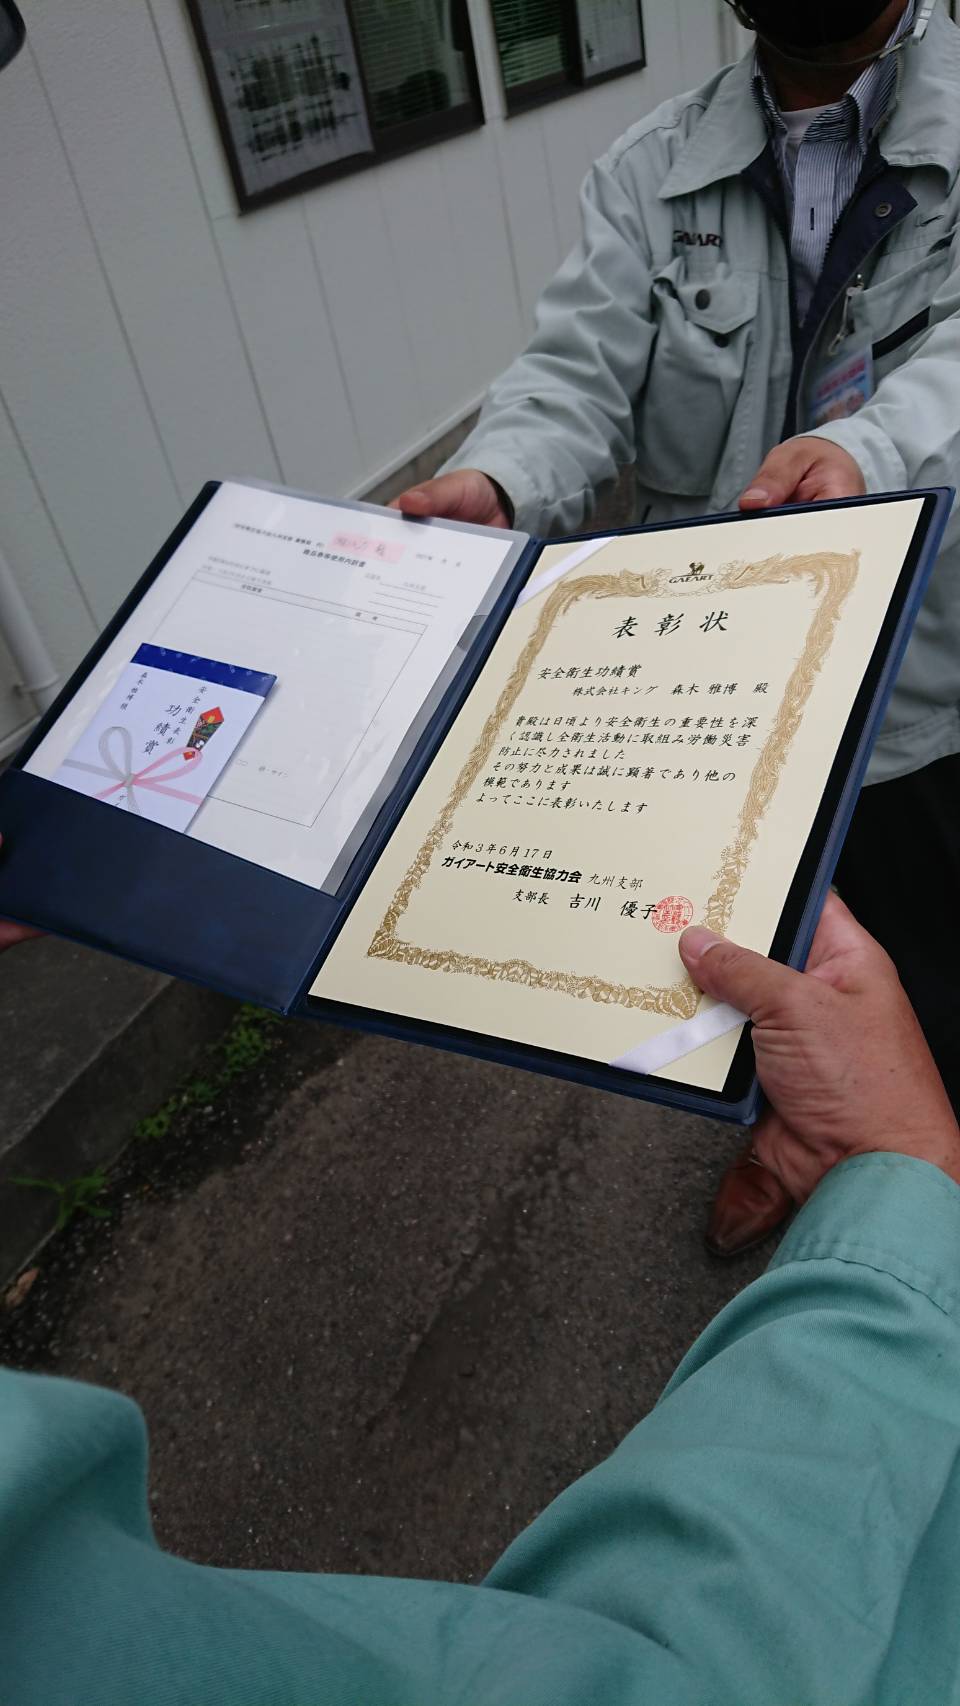 GAEART
商品券等使用内訳書
安全衛生表彰
功績賞
森木雅博様
GAEART
表彰状
安全衛生功績賞
株式会社キング 森木 雅博 殿
貴殿は日頃より安全衛生の重要性を深
く認識し全衛生活動に取組み労働災害
防止に尽力されました
その努力と成果は誠に顕著であり他の
模範であります
よってここに表彰いたします
令和3年6月17日
ガイアート安全衛生協力会 九州支部
支部長 吉川 優子